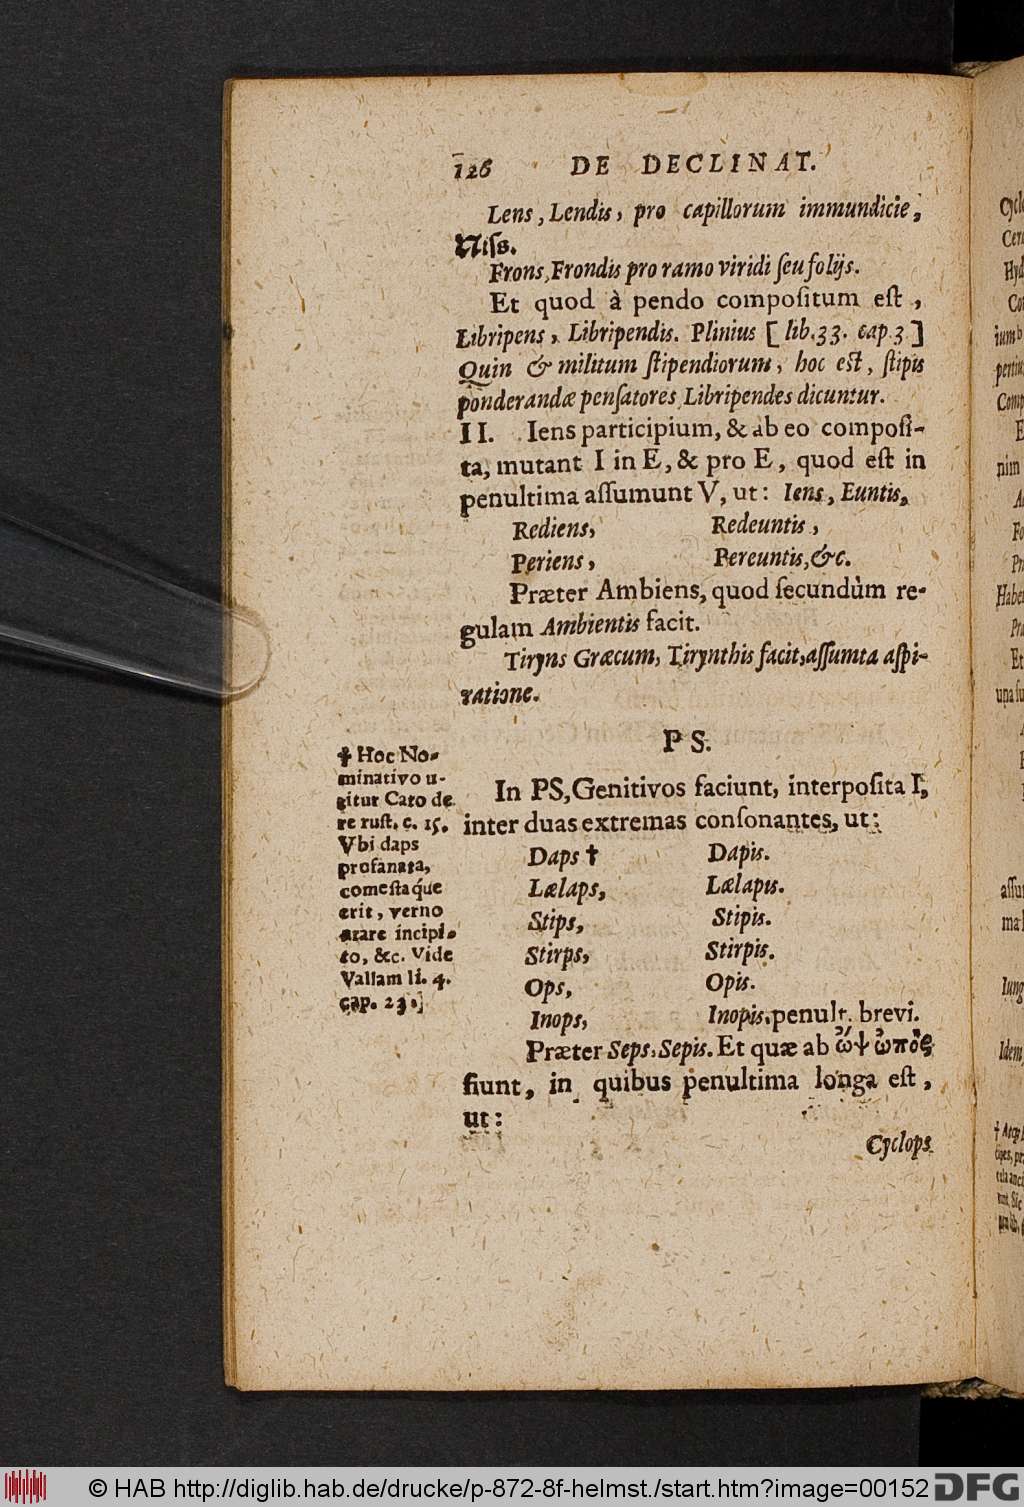 126 DE DECLINAT.
Lens, Lendis, pro capillorum immundicie,
Niſs.
Frons, Frondis pro ramo viridi ſeu folijs.
Et quod à pendo compoſitum eſt,
Libripens, Libripendis. Plinius [lib.33. cap.3]
Quin & militum ſtipendiorum, hoc eſt, ſtipis
ponderandæ penſatores, Libripendes dicuntur.
II. Iens participium, & ab eo compoſi-
ta, mutant I in E, & pro E, quod eſt in
penultima aſſumunt V, ut: Iens, Euntis,
Rediens, Redeuntis,
Periens, Pereuntis, &c.
Præter Ambiens, quod ſecundùm re-
gulam Ambientis facit.
Tiryns Græcum, Tirynthis facit, aſſumta aſpi-
ratione.
PS.
In PS, Genitivos faciunt, interpoſita I,
inter duas extremas conſonantes, ut:
Daps † Dapis.
Lælaps, Lælapis.
Stips, Stipis.
Stirps, Stirpis.
Ops, Opis.
Inops, Inopis, penult. brevi.
Præter Seps, Sepis. Et quæ ab ὤψ ὠπὸς
fiunt, in quibus penultima longa eſt,
ut:
Cyclops
† Hoc No-
minativo u-
titur Cato de
re ruſt. c. 15.
Vbi daps
profanata,
comeſtaq́ue
erit, verno
arare incipi-
to, &c. Vide
Vallam li. 4.
cap. 23.]
© HAB http://diglib.hab.de/drucke/p-872-8f-helmst./start.htm?image=00152
DFG